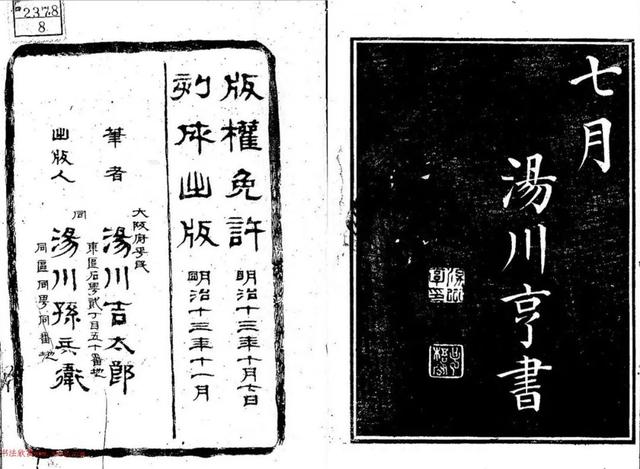 七月
湯川亨書
版權免許 明治十三年十月七日
刻成出版 明治十三年十一月
大阪府平民
筆者 湯川吉太郎
東區石町貳丁目五十番地
同
出版人 湯川孫兵衛
同區同町同番地
2378
8
书法欣赏